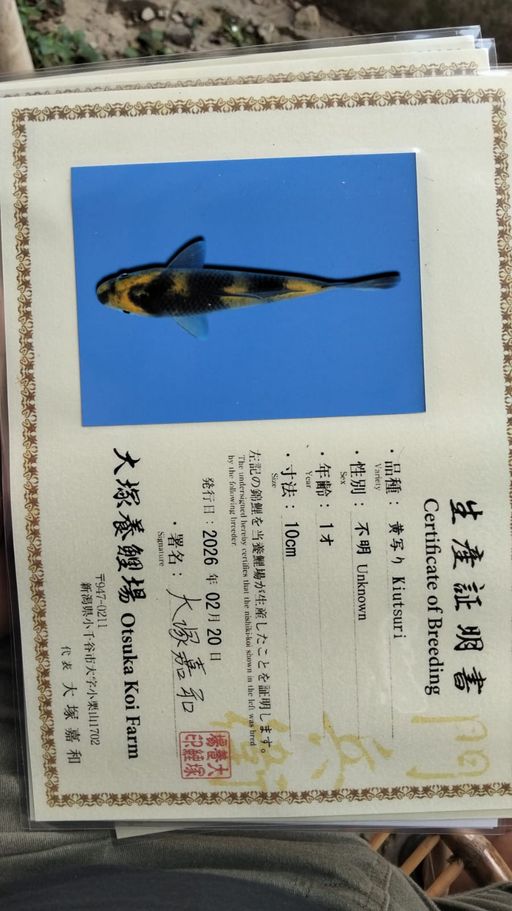 生産証明書
Certificate of Breeding
・品種： 黄写り Kiutsuri
Variety
・性別： 不明 Unknown
Sex
・年齢： 1才
Year
・寸法： 10cm
Size
左記の錦鯉を当養鯉場が生産したことを証明します。
The undersigned hereby certifies that the nishiki-koi shown in the left was bred
by the following breeder.
発行日：2026 年 02 月 20 日
・署名： 大塚嘉和
Signature
大塚養鯉場 Otsuka Koi Farm
〒947-0211
新潟県小千谷市大字小栗山1702
代表 大塚嘉和